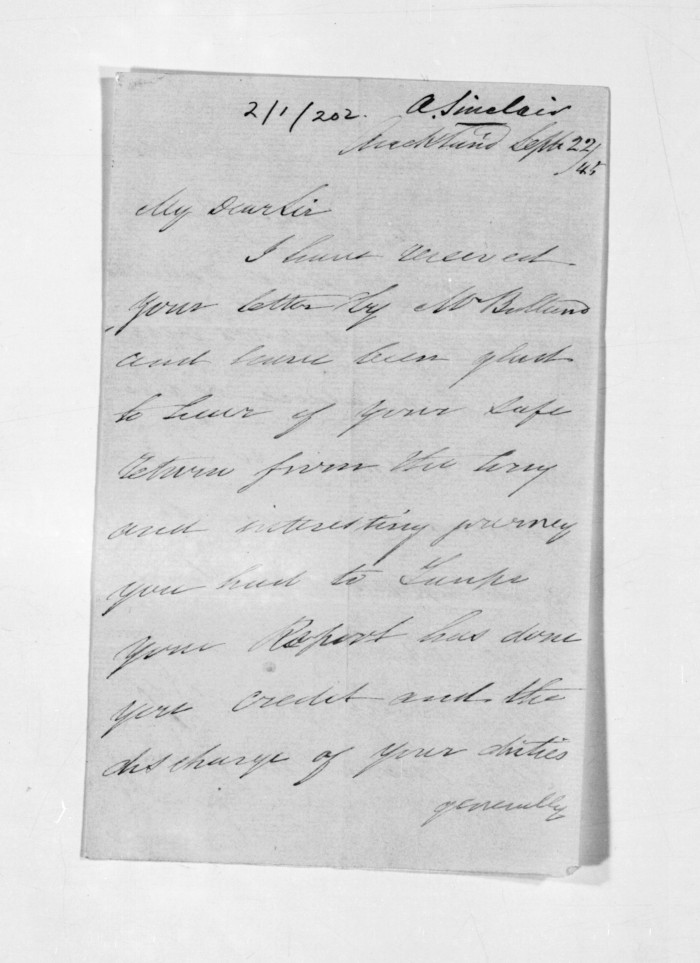 2/1/202. A. Sinclair
Auckland Sept 22/45
My Dear Sir
I have received
your letter by Mr
and have been glad
to hear of your safe
return from the long
and interesting journey
you had to Taupo
your Report has done
you credit and the
discharge of your duties
generally